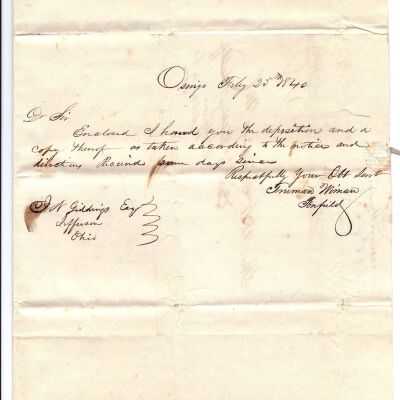 Osnigo Feby 25th 1840
Dr Sir
Enclosed I hand you the deposition and a
copy thereof as taken according to the notices and
directions Received some days since
Respectfully Your Obt Servt
Truman Wiman
Penfield
J R Giddings Esqr
Jefferson
Ohio